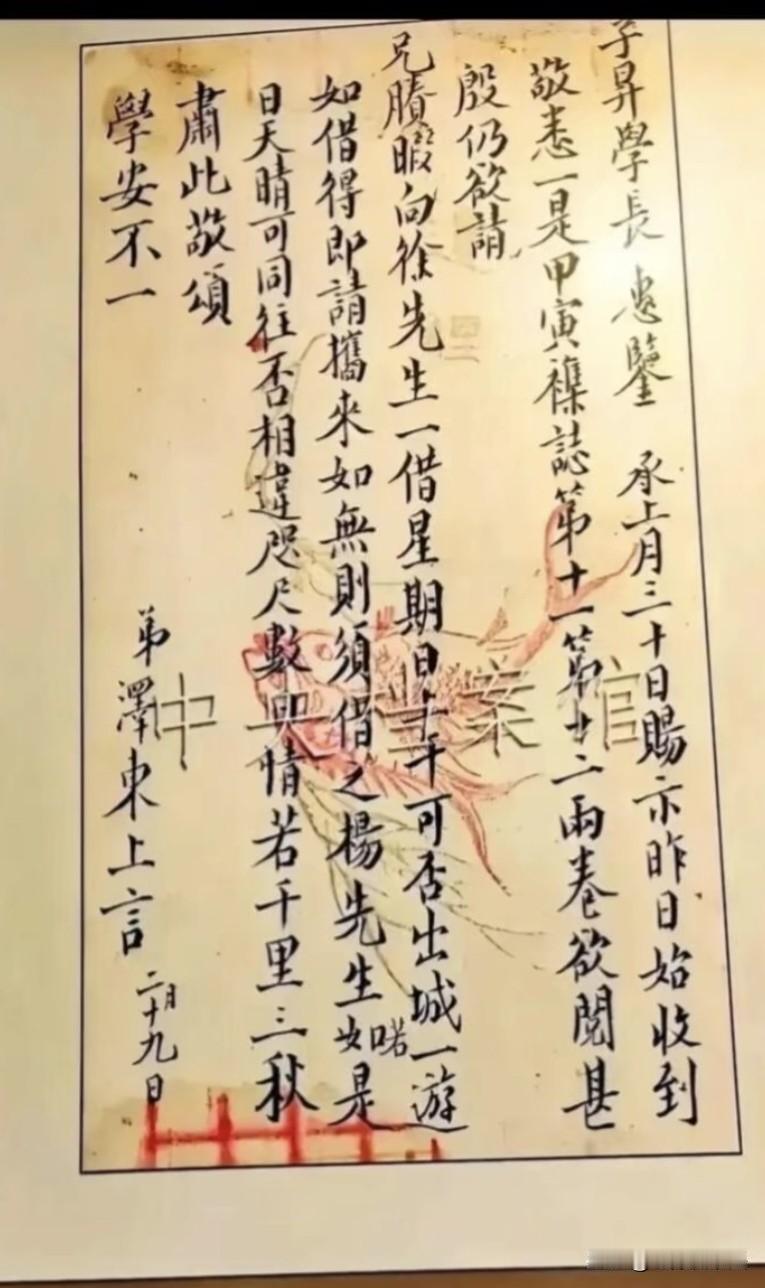 子昇學長惠鑒　承上月三十日賜示昨日始收到
敬悉一是甲寅雜誌第十一第十二兩卷欲閱甚
殷仍欲請
兄賸暇向徐先生一借星期日上午可否出城一游
如借得即請攜來如無則須借之楊先生如喏是
日天晴可同往否相違咫尺數日情若千里三秋
肅此敬頌
學安不一
弟澤東上言
二月十九日
中央檔案館